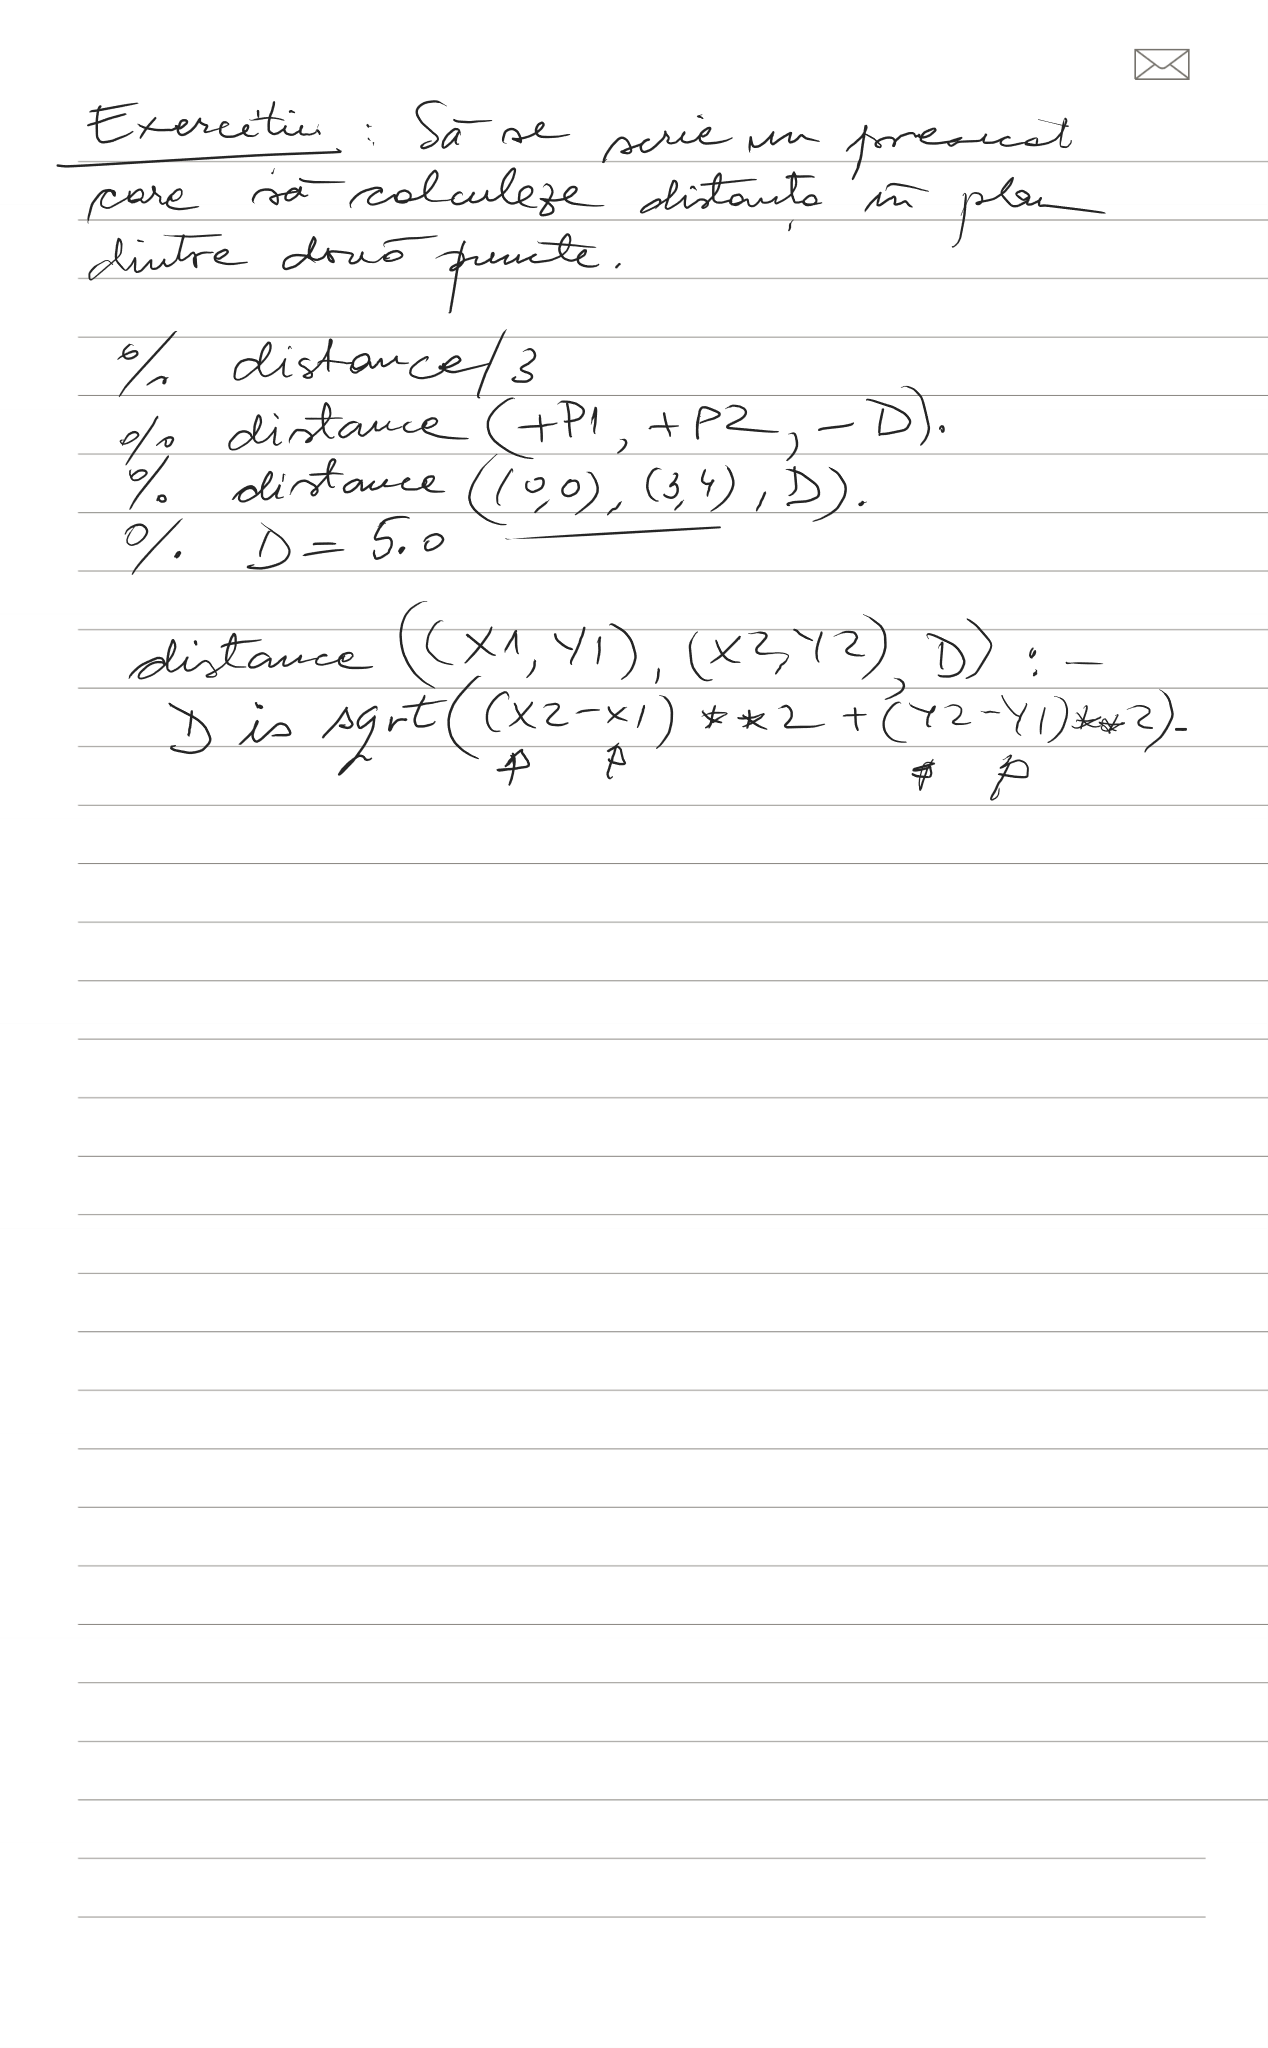 Exercițiu : Să se scrie un predicat
care să calculeze distanța în plan
dintre două puncte.
% distance/3
% distance (+P1, +P2, -D).
% distance ((0,0), (3,4), D).
% D = 5.0
distance ((X1, Y1), (X2, Y2), D) :-
D is sqrt((X2-X1) **2 + (Y2-Y1)**2).